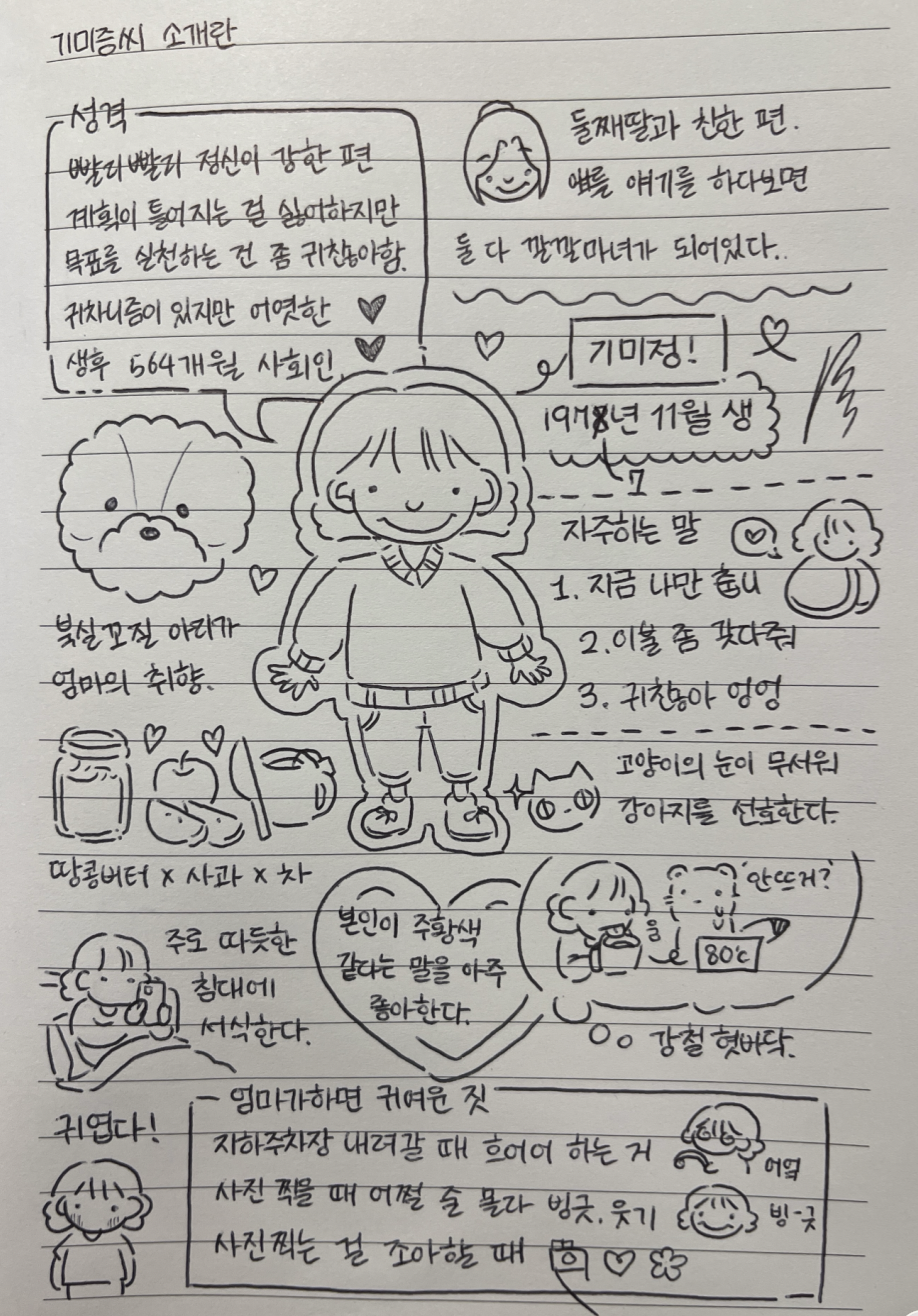 기미증씨 소개란
성격
빨리빨리 정신이 강한 편
계획이 틀어지는 걸 싫어하지만
목표를 실천하는 건 좀 귀찮아함.
귀차니즘이 있지만 어엿한
생후 564개월 사회인
둘째딸과 친한 편.
얘기를 하다보면
둘 다 깔깔마녀가 되어있다..
기미정!
197년 11월 생
7
자주하는 말
1. 지금 나만 춥니
2. 이불 좀 갖다줘
3. 귀찮아 엉엉
북실꼬질 아리가
엄마의 취향.
고양이의 눈이 무서워
강아지를 선호한다.
땅콩버터 x 사과 x 차
주로 따듯한
침대에
서식한다.
본인이 주황색
같다는 말을 아주
좋아한다.
안뜨거?
80℃
강철 혓바닥.
귀엽다!
엄마가하면 귀여운 짓
지하주차장 내려갈 때 흐어어 하는 거
어엌
사진 찍을 때 어쩔 줄 몰라 빙긋. 웃기
빙-긋
사진찍는 걸 조아할 때